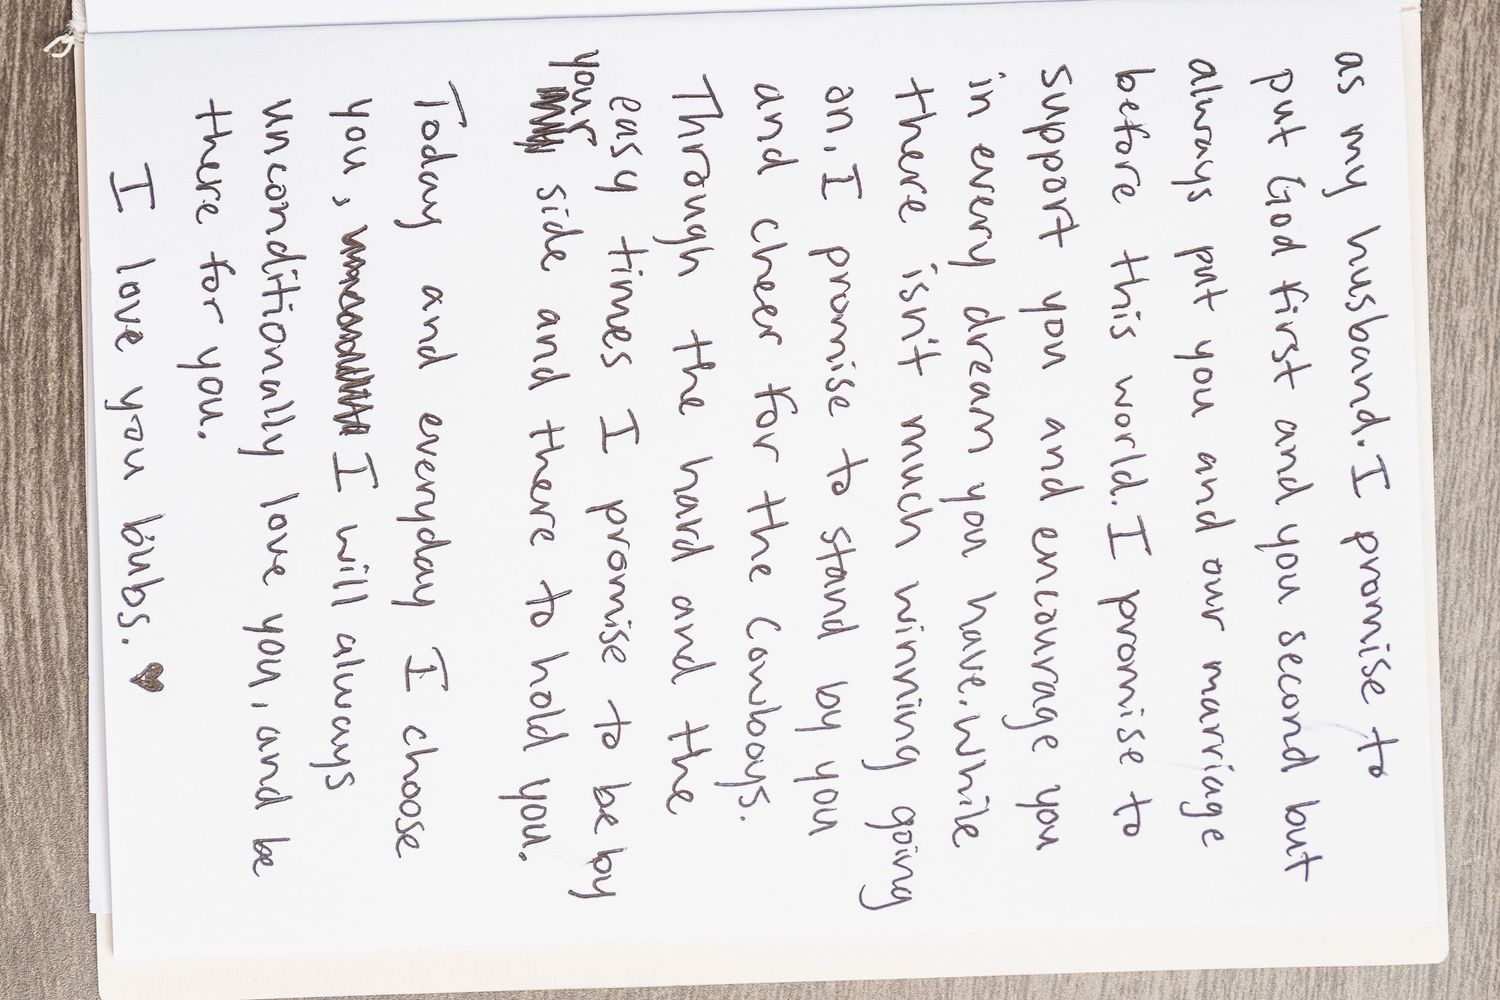 as my husband. I promise to
put God first and you second but
always put you and our marriage
before this world. I promise to
support you and encourage you
in every dream you have. While
there isn't much winning going
on, I promise to stand by you
and cheer for the Cowboys.
Through the hard and the
easy times I promise to be by
your side and there to hold you.
Today and everyday I choose
you, I will always
unconditionally love you, and be
there for you.
I love you bubs. ♥